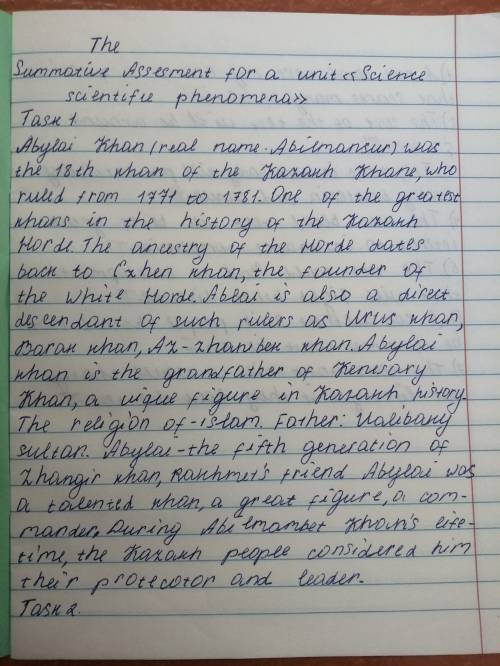 The
Summative Assesment for a unit «Science
scientific phenomena»
Task 1.
Abylai Khan (real name-Abilmansur) was
the 18th khan of the Kazakh Khane, who
ruled from 1771 to 1781. One of the greatest
khans in the history of the Kazakh
Horde. The ancestry of the Horde dates
back to Ezhen khan, the founder of
the White Horde. Ablai is also a direct
descendant of such rulers as Urus khan,
Barak khan, AZ-Zhanibek khan. Abylai
khan is the grandfather of Kenesary
Khan, a uique figure in Kazakh history.
The religion of-islam. Father: Ualibany
sultan. Abylai-the fifth generation of
Zhangir khan, Rakhmet's friend Abylai was
a talented khan, a great figure, a com-
mander. During Abilmambet Khan's life-
time, the Kazakh people considered him
their protecotor and leader.
Task 2.